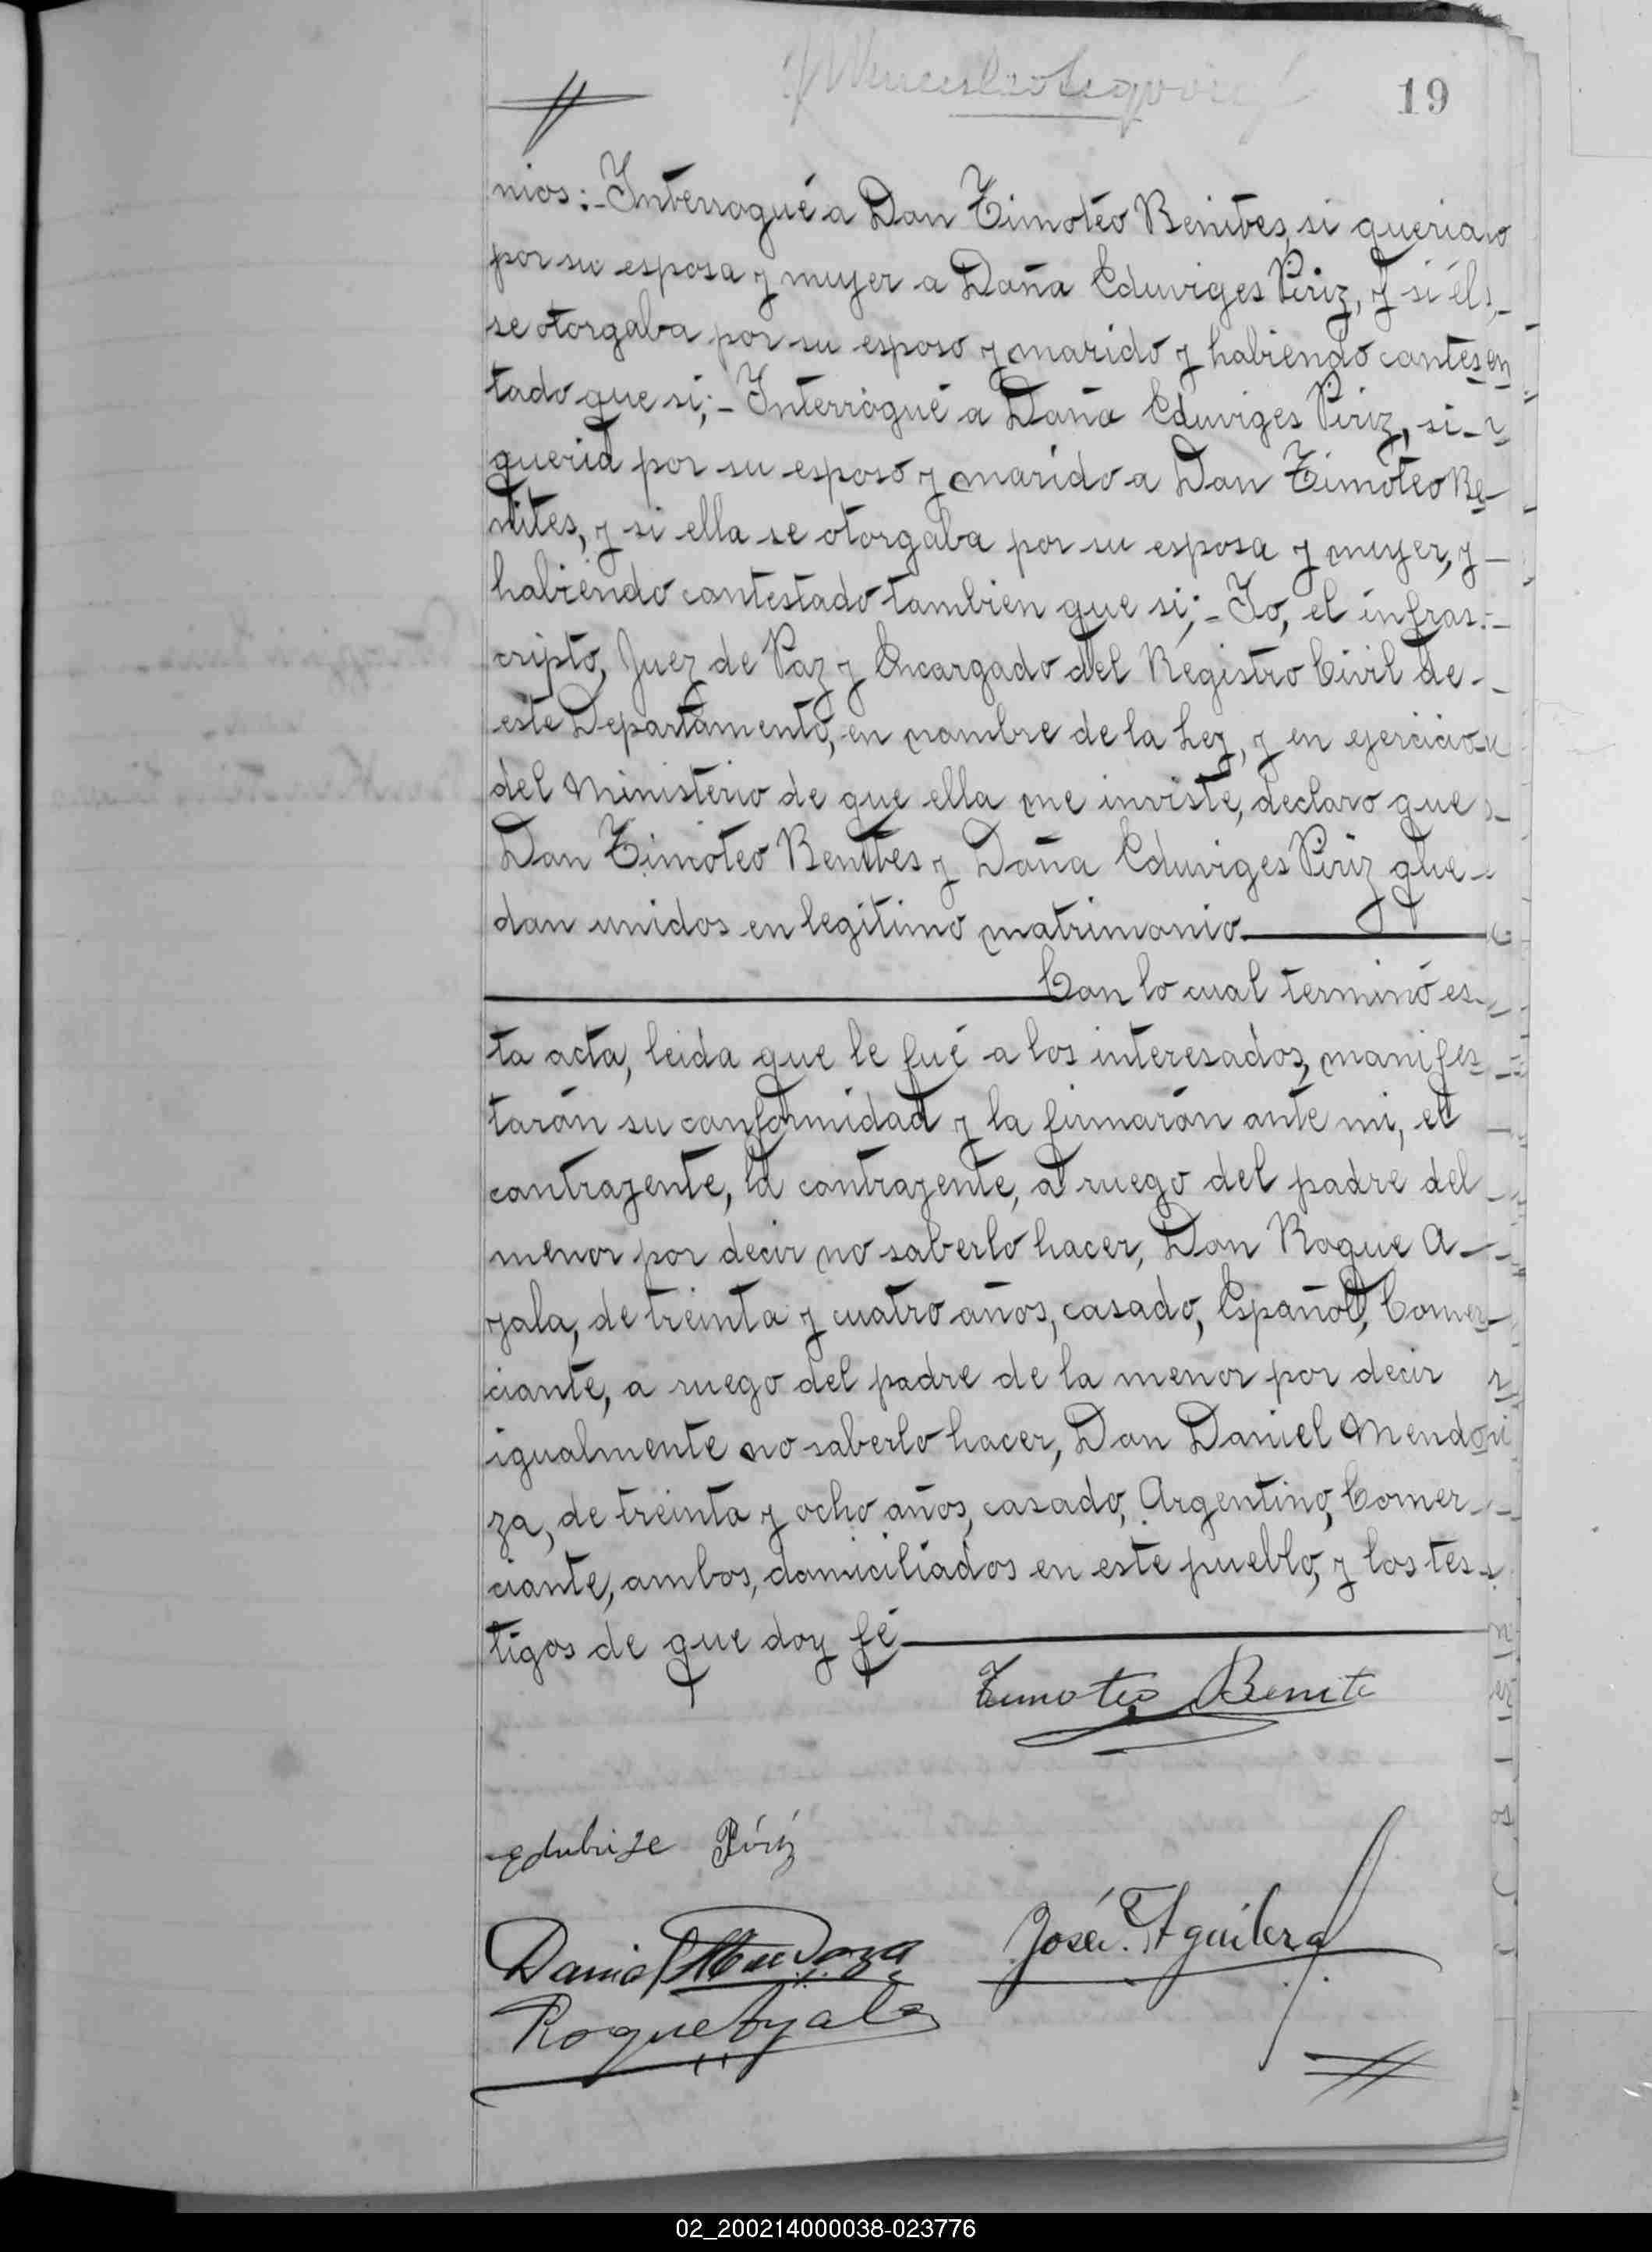 19
nios:- Interrogué a Don Timoteo Benites, si queria
por su esposa y mujer a Doña Eduviges Piriz, y si él
se otorgaba por su esposo y marido y habiendo contes
tado que si;- Interrogué a Doña Eduviges Piriz, si-
queria por su esposo y marido a Don Timoteo Be-
nites, y si ella se otorgaba por su esposa y mujer, y-
habiendo contestado tambien que si;- Yo, el infras-
cripto, Juez de Paz y Encargado del Registro Civil de-
este Departamento, en nombre de la Ley, y en ejercicio
del Ministerio de que ella me inviste, declaro que
Don Timoteo Benites y Doña Eduviges Piriz que-
dan unidos en legitimo matrimonio
Con lo cual terminó es-
ta acta, leida que le fué a los interesados, manifes-
tarón su conformidad y la firmarón ante mi, el
contrayente, la contrayente, a ruego del padre del
menor por decir no saberlo hacer, Don Roque A-
yala, de treinta y cuatro años, casado, Español, Comer-
ciante, a ruego del padre de la menor por decir
igualmente no saberlo hacer, Don Daniel Mendo
za, de treinta y ocho años, casado, Argentino, Comer-
ciante, ambos, domiciliados en este pueblo, y los tes-
tigos de que doy fé
Timoteo Benite
edubije Píriz
Daniel Mendoza
José Aguilera
Roque Ayala
02_200214000038-023776